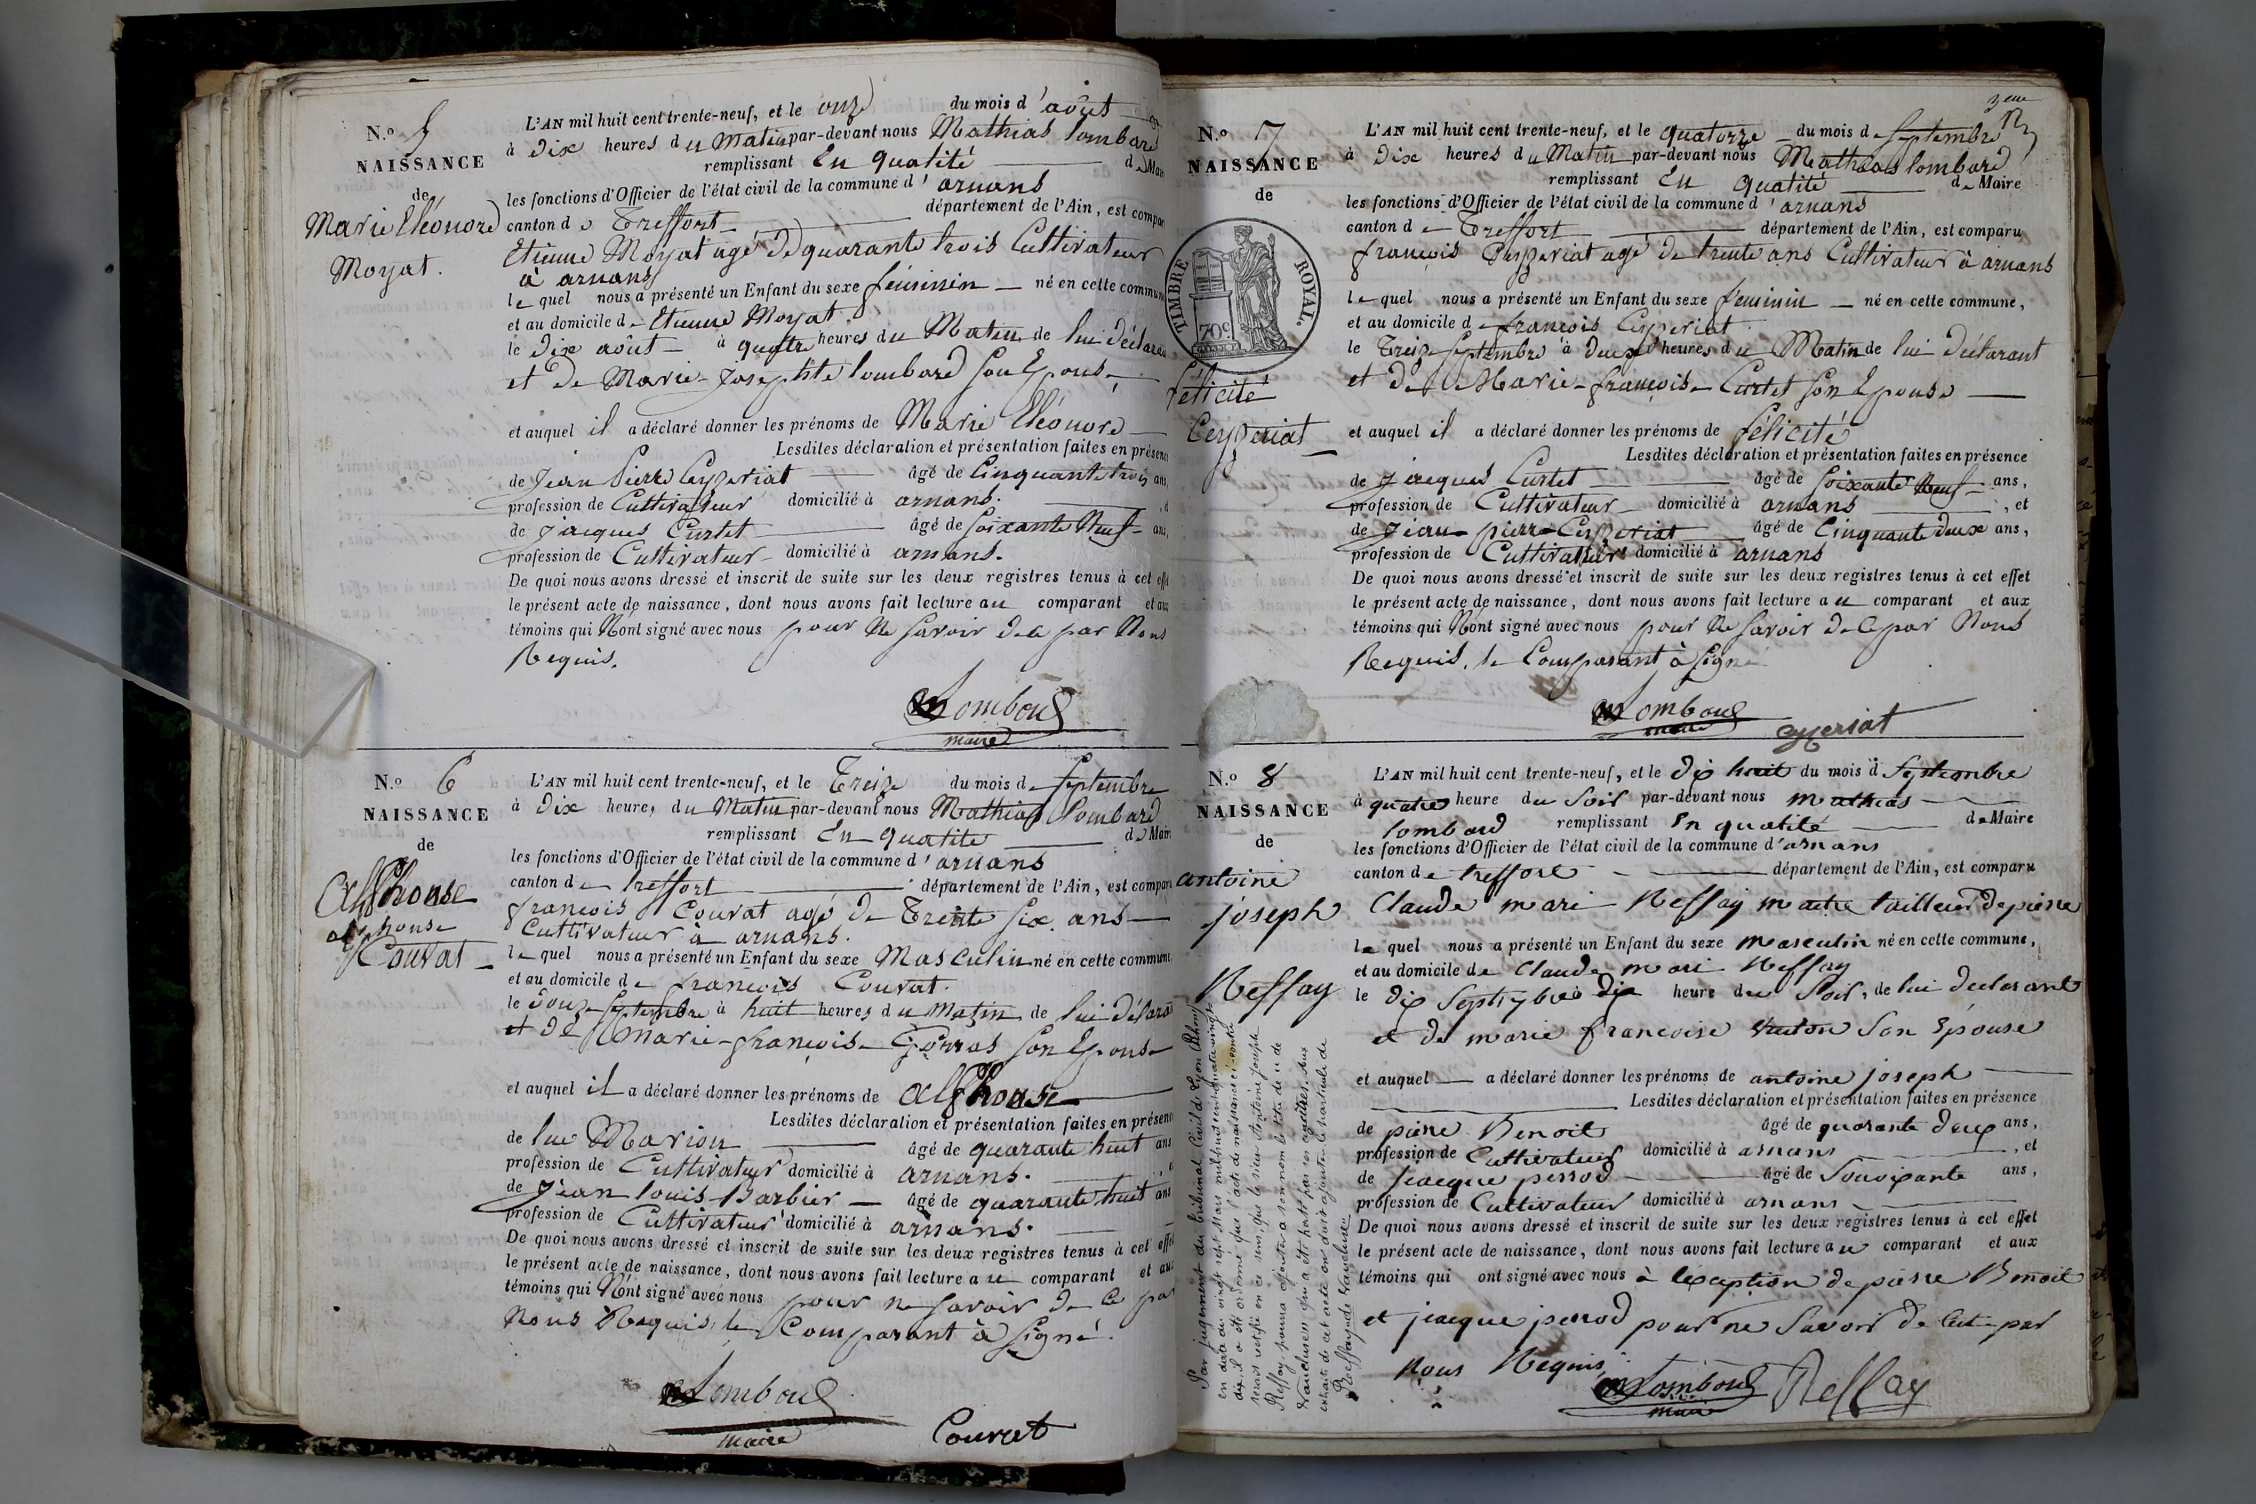 N.o 5
NAISSANCE
de
Marie Eléonore
Moyat.
L'AN mil huit cent trente-neuf, et le onze du mois d'août
à Dix heures du Matin par-devant nous Mathias Lombard
remplissant En qualité de Mair
les fonctions d'Officier de l'état civil de la commune d'arnans
canton de Treffort département de l'Ain, est compar
Etienne Moyat agé de quarante trois Cultivateur
à arnans
le quel nous a présenté un Enfant du sexe féminin né en cette commun
et au domicile de Etienne Moyat.
le Dix août à quatre heures du Matin de lui déclara
et de Marie-Josephte Lombard son Epouse
et auquel il a déclaré donner les prénoms de Marie Eléonore
Lesdites déclaration et présentation faites en présenc
de Jean Pierre Ceyzeriat âgé de Cinquante trois ans,
profession de Cultivateur domicilié à arnans.
de Jacques Curtet âgé de soixante Neuf ans,
profession de Cultivateur domicilié à arnans.
De quoi nous avons dressé et inscrit de suite sur les deux registres tenus à cet effet
le présent acte de naissance, dont nous avons fait lecture au comparant et aux
témoins qui N'ont signé avec nous pour Ne savoir de ce par Nous
Requis.
mLombard
maire
N.o 6
NAISSANCE
de
Alphonse
alphonse
Couvat
L'AN mil huit cent trente-neuf, et le Treize du mois de Septembre
à Dix heures du Matin par-devant nous Mathias Lombard
remplissant En qualité de Mair
les fonctions d'Officier de l'état civil de la commune d'arnans
canton de treffort département de l'Ain, est comparu
françois Couvat agé de Trente six ans
Cultivateur à arnans.
le quel nous a présenté un Enfant du sexe Masculin né en cette commune
et au domicile de françois Couvat.
le Douze Septembre à huit heures du Matin de lui déclara
et de Marie-françoise son Epouse
et auquel il a déclaré donner les prénoms de Alphonse
Lesdites déclaration et présentation faites en présenc
de luc Marion âgé de quarante huit ans
profession de Cultivateur domicilié à arnans.
de Jean louis Barbier âgé de quarante huit ans
profession de Cultivateur domicilié à arnans.
De quoi nous avons dressé et inscrit de suite sur les deux registres tenus à cet effet
le présent acte de naissance, dont nous avons fait lecture au comparant et aux
témoins qui N'ont signé avec nous pour ne savoir de ce par
Nous Requis, le Comparant à signé.
mLombard
maire
Couvat
3eme
N.o 7
NAISSANCE
de
TIMBRE ROYAL.
70c.
félicité
Ceyzeriat
L'AN mil huit cent trente-neuf, et le quatorze du mois de Septembre
à Dix heures du Matin par-devant nous Mathias Lombard
remplissant En qualité de Maire
les fonctions d'Officier de l'état civil de la commune d'arnans
canton de Treffort département de l'Ain, est comparu
françois Ceyzeriat agé de trente ans Cultivateur à arnans
le quel nous a présenté un Enfant du sexe feminin né en cette commune,
et au domicile de françois Ceyzeriat.
le Treize Septembre à Deux heures du Matin de lui déclarant
et de Marie-françoise Curtet son Epouse
et auquel il a déclaré donner les prénoms de félicité
Lesdites déclaration et présentation faites en présence
de Jacques Curtet âgé de soixante Neuf ans,
profession de Cultivateur domicilié à arnans, et
de Jean-pierre Ceyzeriat âgé de Cinquante deux ans,
profession de Cultivateur domicilié à arnans
De quoi nous avons dressé et inscrit de suite sur les deux registres tenus à cet effet
le présent acte de naissance, dont nous avons fait lecture au comparant et aux
témoins qui N'ont signé avec nous pour Ne savoir de ce par Nous
Requis, le Comparant à signé
mLombard
maire
ceyzeriat
N.o 8
NAISSANCE
de
antoine
joseph
Reffay
L'AN mil huit cent trente-neuf, et le dix huit du mois d Septembre
à quatre heure du Soir par-devant nous mathias
lombard remplissant En qualité de Maire
les fonctions d'Officier de l'état civil de la commune d'arnans
canton de treffort département de l'Ain, est comparu
Claude mari Reffay maitre tailleur de pierre
le quel nous a présenté un Enfant du sexe masculin né en cette commune,
et au domicile de Claude mari Reffay
le dix Septembre à dix heure du Soir, de lui declarant
et de marie françoise son Epouse
et auquel a déclaré donner les prénoms de antoine joseph
Lesdites déclaration et présentation faites en présence
de piere Benoit âgé de quarante deux ans,
profession de Cultivateur domicilié à arnans, et
de jacque perrod âgé de Souixante ans,
profession de Cultivateur domicilié à arnans
De quoi nous avons dressé et inscrit de suite sur les deux registres tenus à cet effet
le présent acte de naissance, dont nous avons fait lecture au comparant et aux
témoins qui ont signé avec nous à l'exception de piere Benoit
et jacque perrod pour ne Savoir de Cet par
Nous Requis
mLombard
maire
Reffay
Par jugement du tribunal Civil de Lyon Rhône
en date du vingt sept Mars mil huit cent quatre vingt
dix, il a été ordonné que l'acte de naissance ci-contre
serait rectifié en ce sens que le sieur Antoine Joseph
Reffay pourra ajouter a son nom le titre de
Vauclusien qui a été porté par ses ancêtres. Aux
extraits de cet acte on doit ajouter la particule de
Reffay de Vaucluse